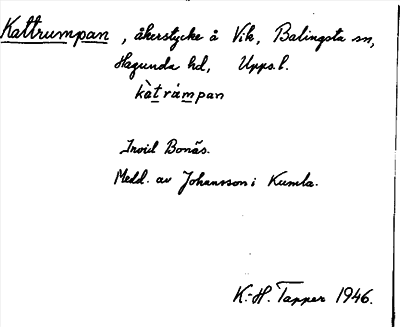 Kattrumpan, åkerstycke å Vik, Balingsta sn,
Hagunda hd, Upps. l.
kàtrámpan
Invid Bonäs.
Medd. av Johansson i Kumla.
K.-H. Tapper 1946.